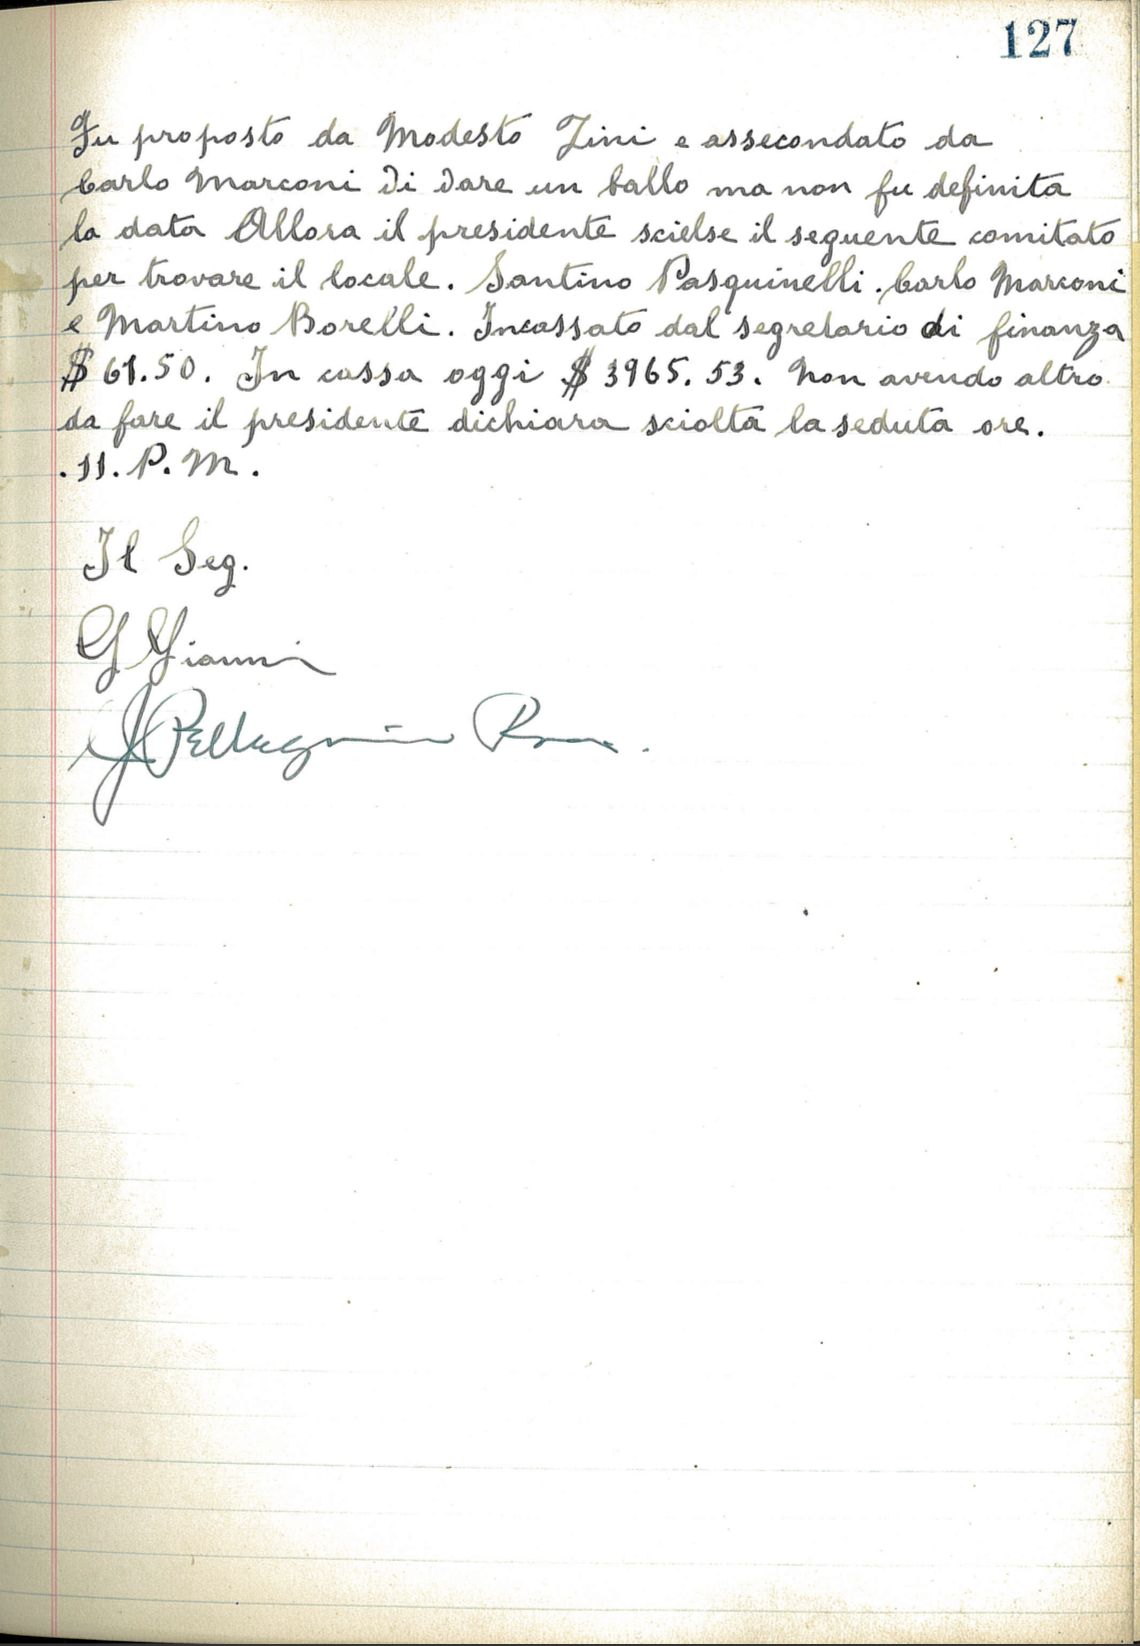 127
Fu proposto da Modesto Zini e assecondato da
Carlo Marconi di dare un ballo ma non fu definita
la data Allora il presidente scielse il seguente comitato
per trovare il locale. Santino Pasquinelli. Carlo Marconi
e Martino Borelli. Incassato dal segretario di finanza
$ 61.50. In cassa oggi $ 3965.53. Non avendo altro
da fare il presidente dichiara sciolta la seduta ore.
.11. P.M.
Il Seg.
G Gianni
Pellegrini